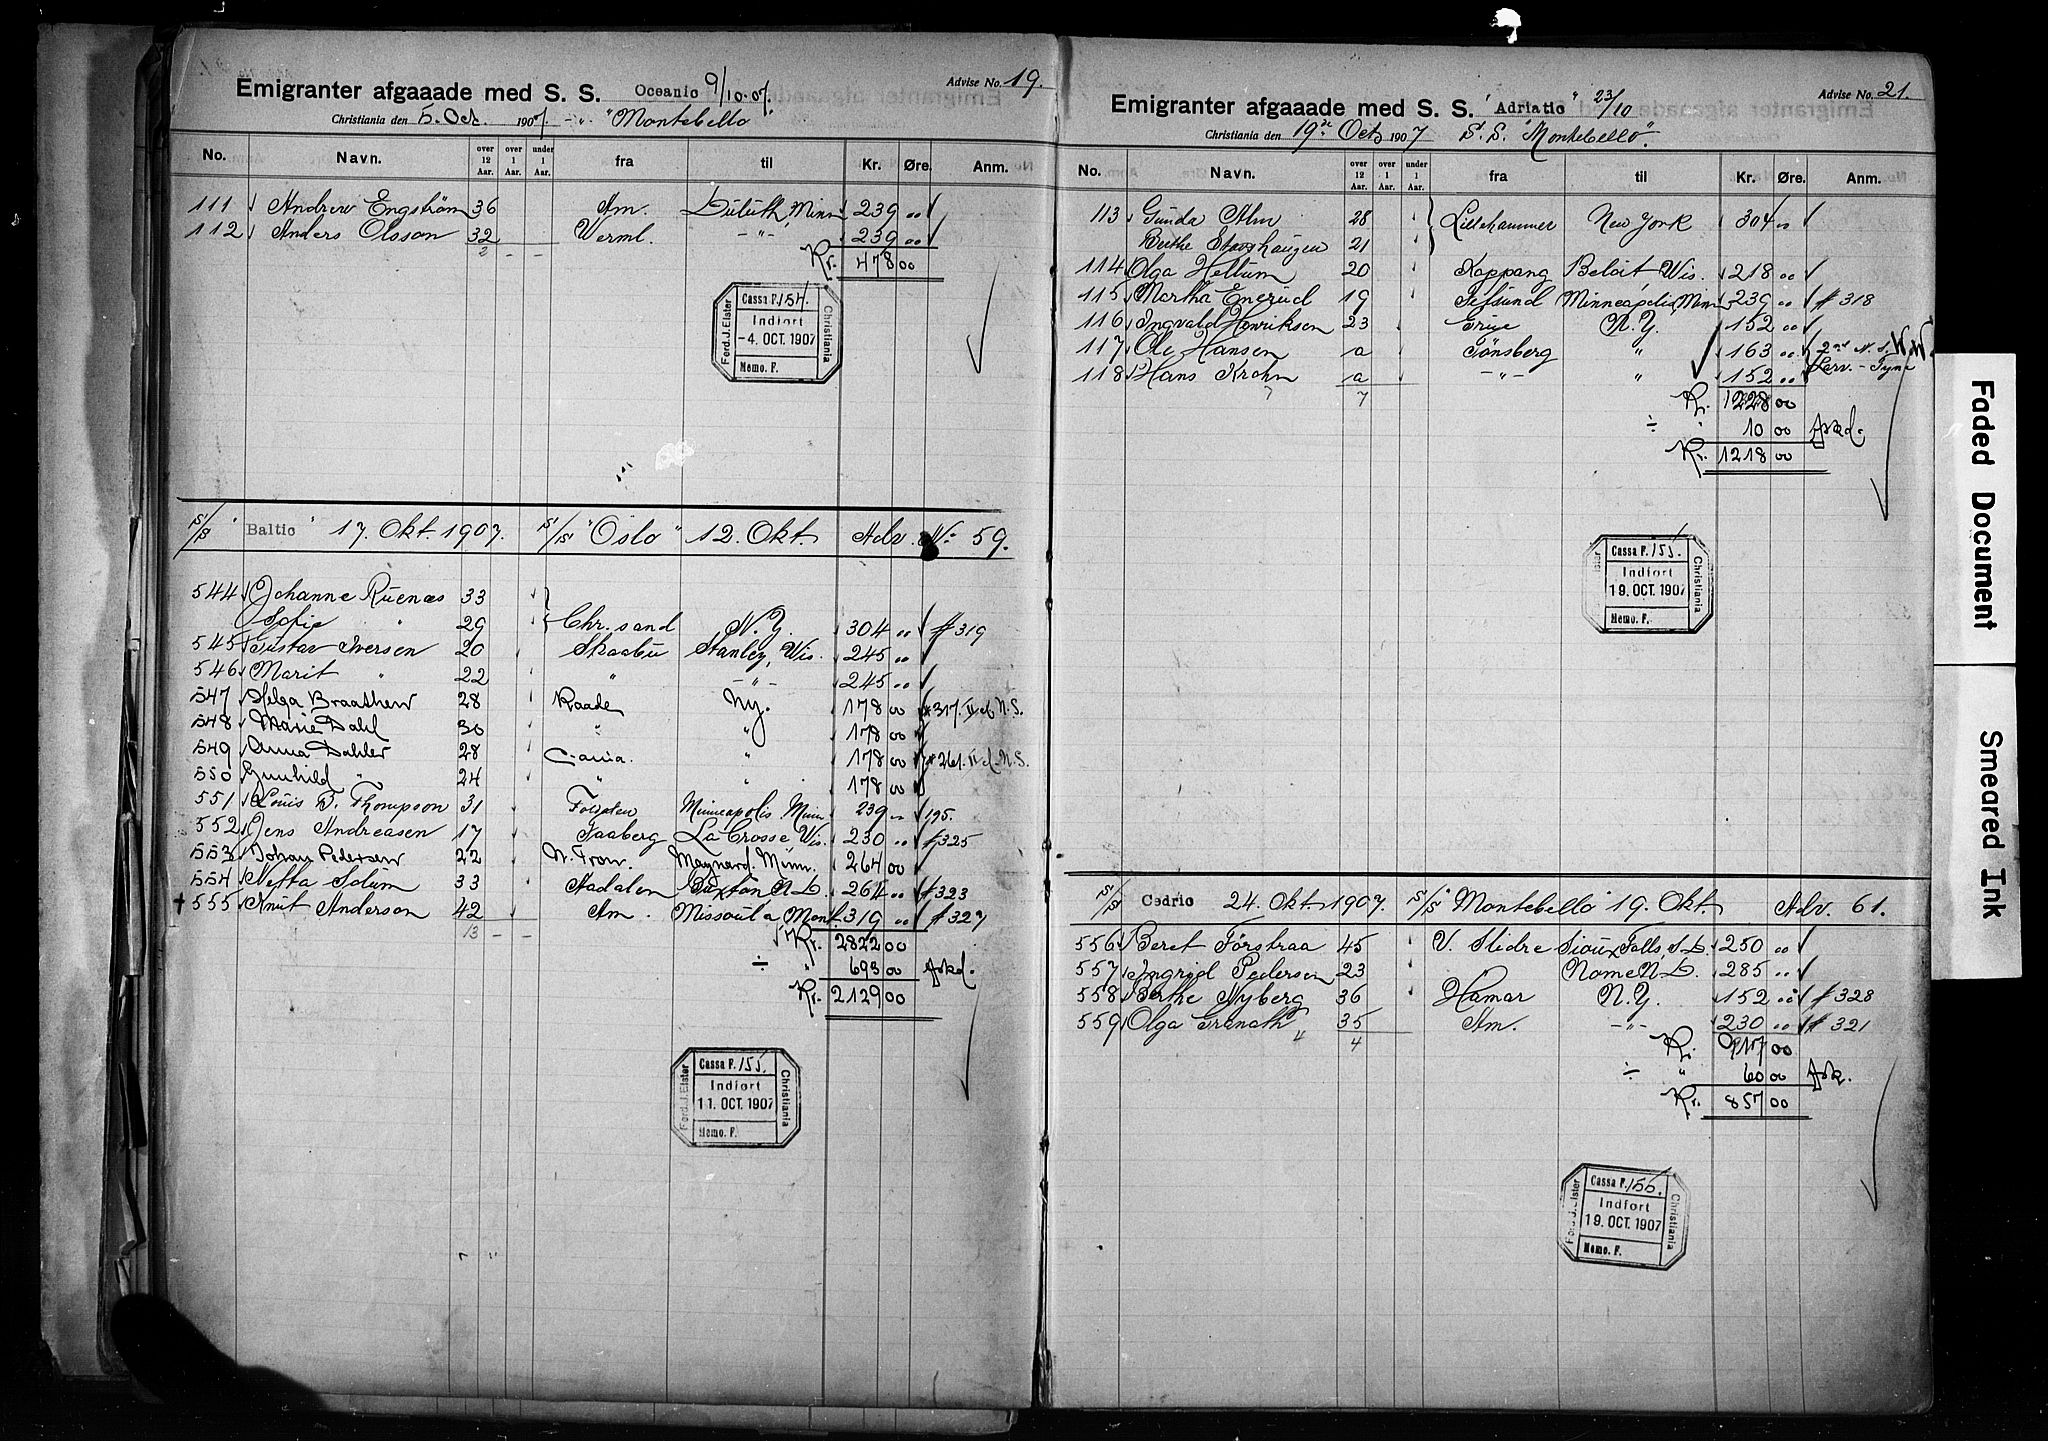 Emigranter afgaaade med S. S. Oceanic 9/10.07. Advise No. 19.
Christiania den 5. Oct. 1907. -"- "Montebello"
No. Navn. over 12 Aar. over 1 Aar. under 1 Aar. fra til Kr. Øre. Anm.
111 Andrew Engström 36 Am. Duluth Minn 239 00
112 Anders Olsson 32 Verml. -"- 239 00
2 - - Kr. 478 00
Ferd. J. Elster Cassa F. 154. Christiania
Indført
-4. OCT. 1907
Memo. F.
S/S "Baltic" 17. Okt. 1907. S/S "Oslo" 12. Okt. Adv. No. 59.
544 Johanne Ruenæs 33
Sofie " 29 Chr.sand N.Y. 304 00 # 319
545 Gustav Iversen 20 Skaabu Stanley, Wis. 245 00
546 Marit " 22 " -"- 245 00
547 Helga Braathen 28 Raade Ny. 178 00 # 317. II cl N.S.
548 Marie Dahl 30 " " 178 00
549 Anna Dahler 28 Cania. " 178 00 # 261. II cl. N.S.
550 Gunhild " 24 " " 178 00
551 Louis T. Thompson 31 Minneapolis Minn 239 195.
552 Jens Andreasen 17 Faaberg La Crosse, Wis. 230 00 # 325
553 Johan Pedersen 22 N. Tron. Maynard. Minn. 264 00
554 Netta Solum 33 Aadalen Buxton N.D. 264 00 # 323
555 Knut Anderson 42 Am. Missoula Mont. 319 00 # 327
13 - - Kr. 2822 00
÷ " 693 00 Askd.
Kr. 2129 00
Ferd. J. Elster Cassa F. 155. Christiania
Indført
11. OCT. 1907
Memo. F.
Emigranter afgaaade med S. S. "Adriatic" 23/10 Advise No. 21.
Christiania den 19de Oct 1907 S. S. "Montebello".
No. Navn. over 12 Aar. over 1 Aar. under 1 Aar. fra til Kr. Øre. Anm.
113 Gunda Alm 28 Lillehammer New York 304 00
Berthe 21
114 Olga Heltum 20 Koppang Beloit Wis. 218 00
115 Martha Enerud 19 Minneapolis, Minn 239 00 # 318
116 Ingvald Henriksen 23 N.Y. 152 00
117 Ole Hansen a Tönsberg " 163 00 2nd N.S.
118 Hans Krohn a -"- " 152 00 Larv. - Tyne
7 Kr. 1228 00
÷ " 10 00 Askd.
Kr. 1218 00
Cassa F. 155. Christiania
Indført
19. OCT. 1907
Memo. F.
S/S "Cedric 24. Okt. 1907. S/S "Montebello" 19. Okt. Adv. 61.
556 Beret Förstraa 45 V. Slidre Sioux Falls, S.D. 250 00
557 Ingrid Pedersen 23 Nome N.D. 285 00
558 Berthe Nyberg 36 Hamar N.Y. 152 00 # 328
559 Olga Granath 35 Am. -"- 230 00 # 321
4 Kr. 917 00
÷ " 60 00 Ask.
Kr. 857 00
Ferd. J. Elster Cassa F. 155. Christiania
Indført
19. OCT. 1907
Memo. F.
Faded Document
Smeared Ink